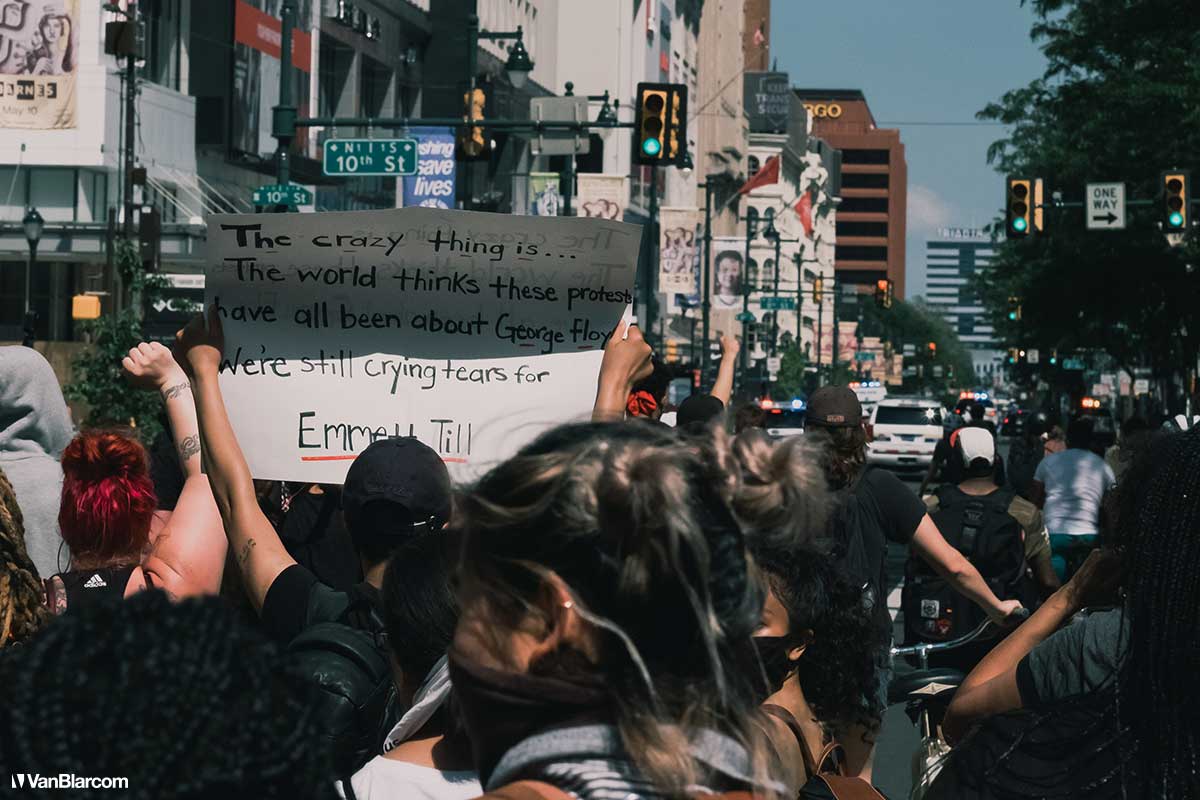 BARNES
May 10
N 11 S
10th St
10th St
shing
save
lives
GO
ONE
WAY
TRIADA
The crazy thing is...
The world thinks these protests
have all been about George Floy
We're still crying tears for
Emmett Till
adidas
VanBlarcom